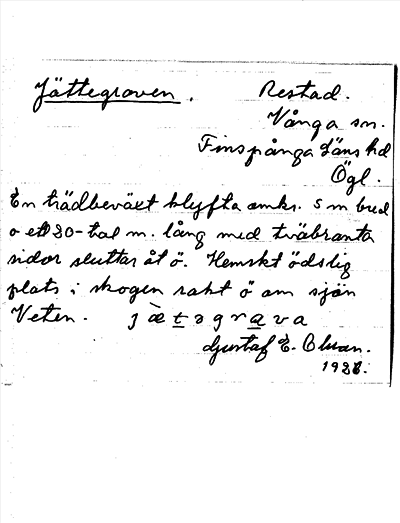 Jättegraven. Restad.
Vånga sn.
Finspånga läns hd
Ögl.
En trädbeväxt klyfta omkr. 5 m bred
o ett 30-tal m. lång med tvåbranta
sidor sluttar åt ö. Hemskt ödslig
plats i skogen rakt ö om sjön
Veten. jæ̀təgrava
Gustaf E. Olsson.